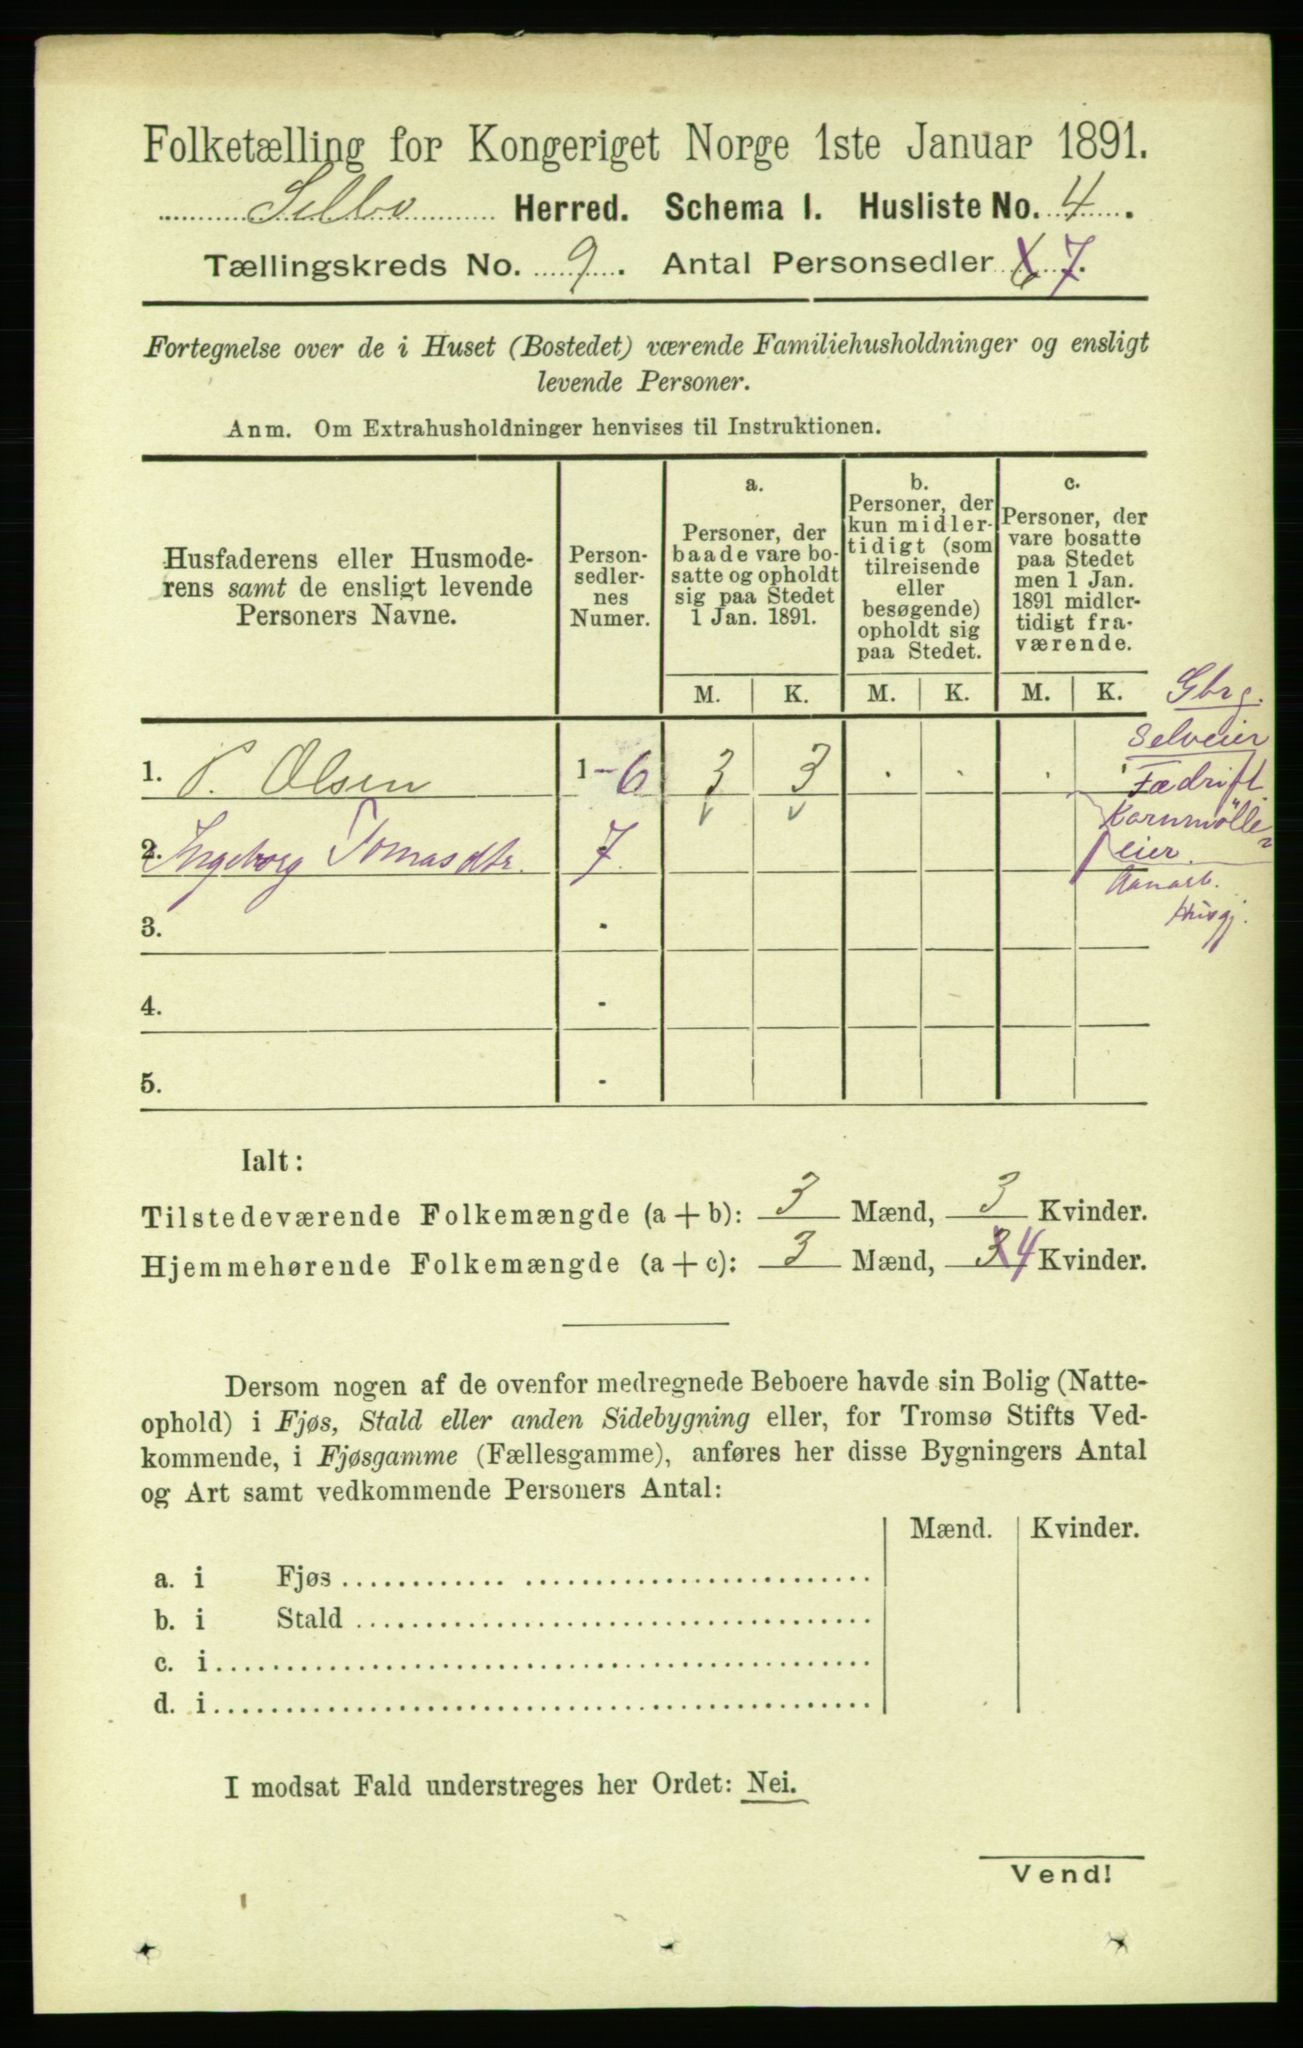 Folketælling for Kongeriget Norge 1ste Januar 1891.
Selbo Herred. Schema I. Husliste No. 4.
Tællingskreds No. 9. Antal Personsedler 6 7.
Fortegnelse over de i Huset (Bostedet) værende Familiehusholdninger og ensligt
levende Personer.
Anm. Om Extrahusholdninger henvises til Instruktionen.
Husfaderens eller Husmode-
rens samt de ensligt levende
Personers Navne.
Person-
sedler-
nes
Numer.
a.
Personer, der
baade vare bo-
satte og opholdt
sig paa Stedet
1 Jan. 1891.
b.
Personer, der
kun midler-
tidigt (som
tilreisende
eller
besøgende)
opholdt sig
paa Stedet.
c.
Personer, der
vare bosatte
paa Stedet
men 1 Jan.
1891 midler-
tidigt fra-
værende.
M. K. M. K. M. K.
Gbrg.
Selveier
Fædrift
Kornmölle-
eier.
Husgj.
1. P. Olsen 1-6 3 3 . . .
2. Ingeborg Tomasdtr. 7
3. -
4. -
5. -
Ialt:
Tilstedeværende Folkemængde (a + b): 3 Mænd, 3 Kvinder.
Hjemmehørende Folkemængde (a + c): 3 Mænd, 3 4 Kvinder.
Dersom nogen af de ovenfor medregnede Beboere havde sin Bolig (Natte-
ophold) i Fjøs, Stald eller anden Sidebygning eller, for Tromsø Stifts Ved-
kommende, i Fjøsgamme (Fællesgamme), anføres her disse Bygningers Antal
og Art samt vedkommende Personers Antal:
Mænd. Kvinder.
a. i Fjøs
b. i Stald
c. i
d. i
I modsat Fald understreges her Ordet: Nei.
Vend!